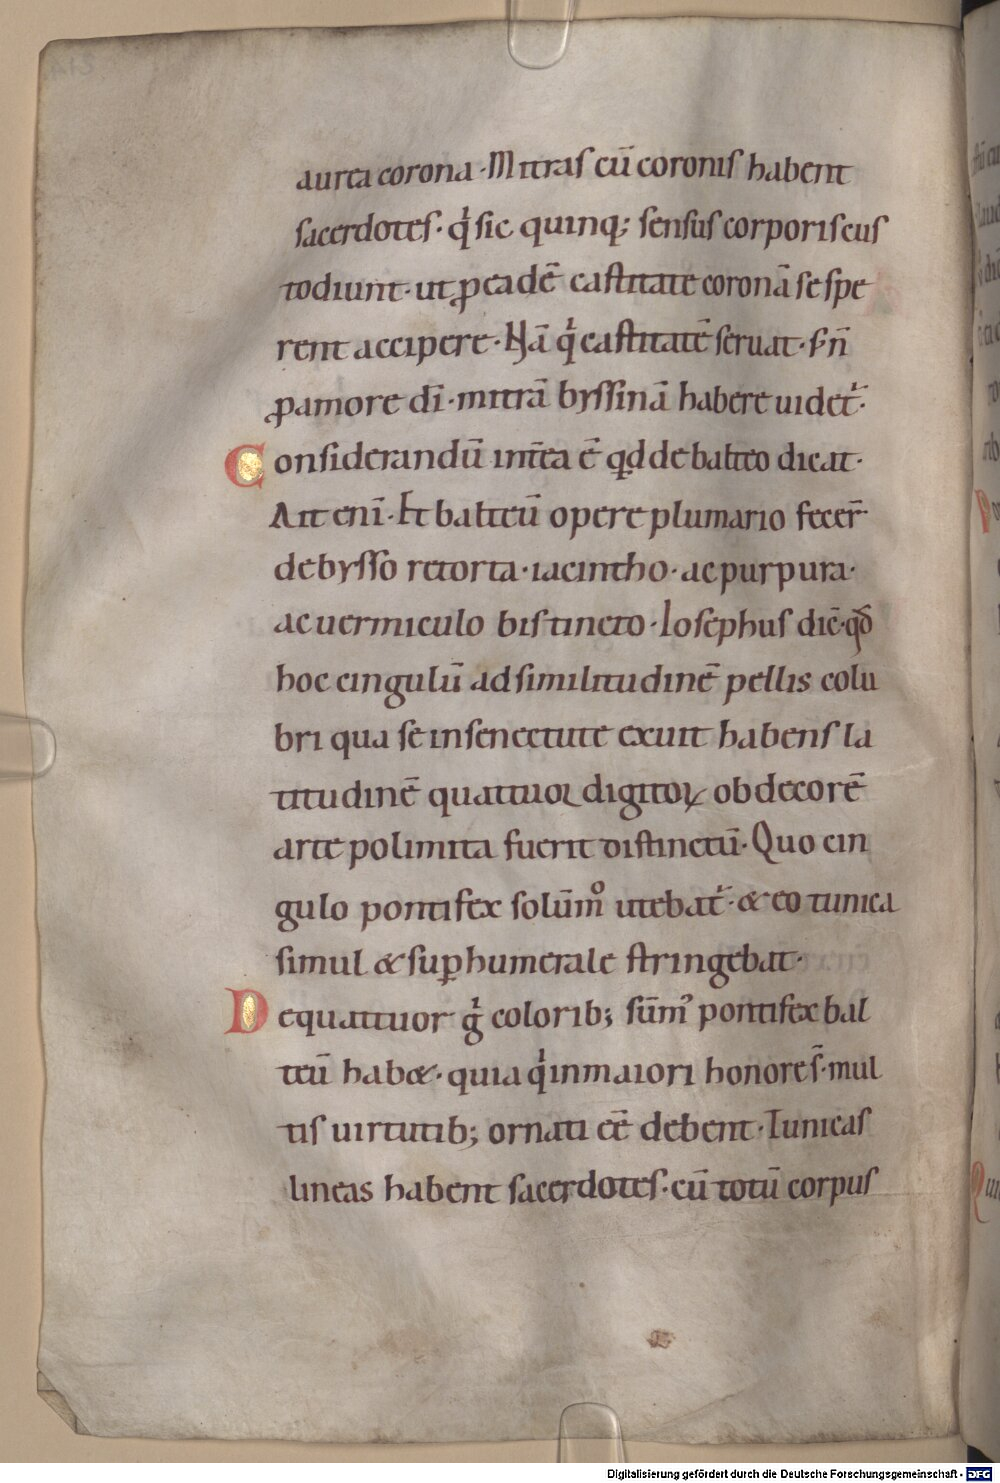 aurea corona · Mitras cū coronis habent
sacerdotes · q̍ sic quinq; sensus corporis cus
todiunt · ut ꝑ eadē castitate coronā se spe
rent accipere · Nā q̍ castitatē seruat · s; n̄
ꝓ amore dī · mitrā byssinā habere uidet̍ ·
Considerandū int̄ea ē qd de balteo dicat ·
Ait eni᷒ · Et balteū opere plumario fecer̄ ·
de bysso retorta · iacintho · ac purpura ·
ac uermiculo bis tincto · Iosephus dic̄ · qđ
hoc cingulū ad similitudinē pellis colu
bri qua se in senectute exuit habens la
titudinē quattuor digitoꝝ ob decorē
arte polimita fuerit distinctū · Quo cin
gulo pontifex solūmͦ utebat̍ · & eo tunica
simul & suꝑhumerale stringebat ·
De quattuor g̍ colorib; sūm᷒ pontifex bal
teū hab& · quia q̍ in maiori honore s̄ · mul
tis uirtutib; ornati eē debent · Tunicas
lineas habent sacerdotes · cū totū corpus
Digitalisierung gefördert durch die Deutsche Forschungsgemeinschaft - DFG